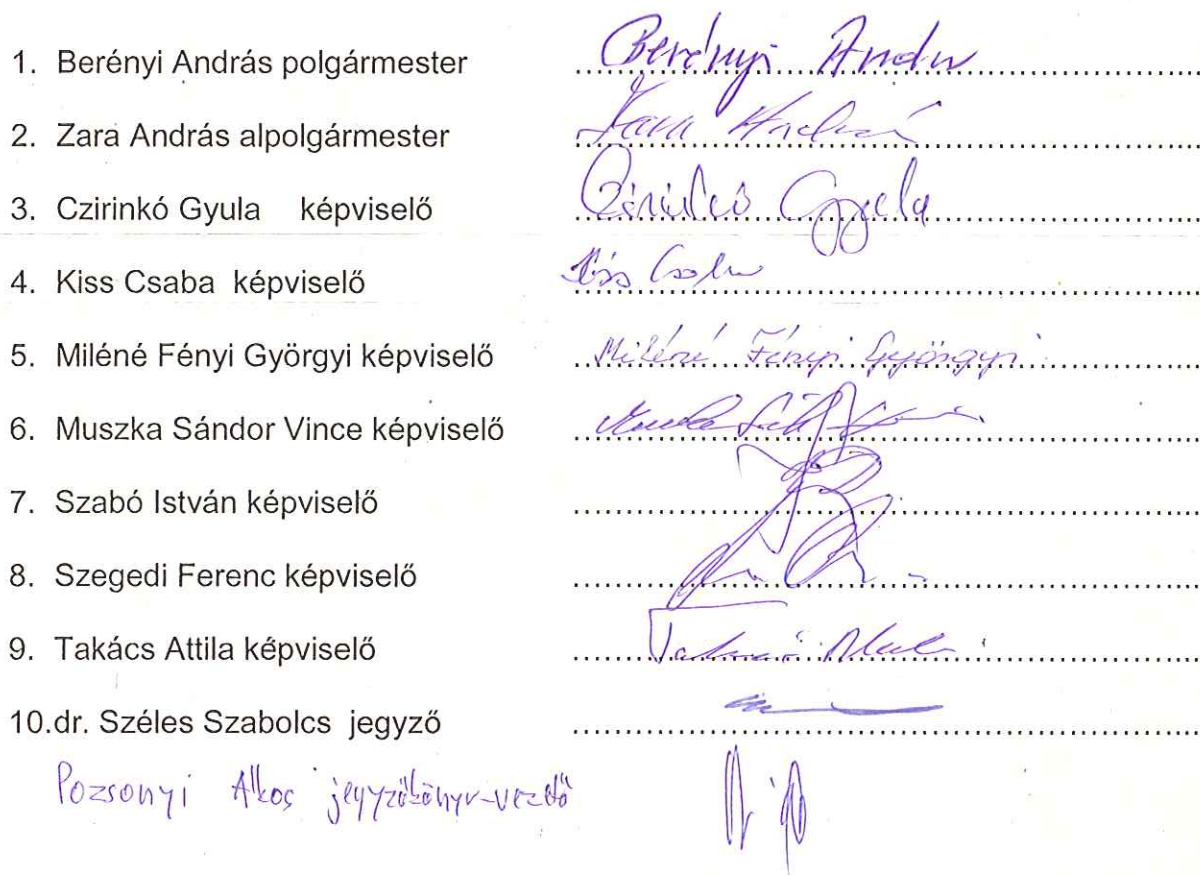 1. Berényi András polgármester Berényi András
2. Zara András alpolgármester Zara András
3. Czirinkó Gyula képviselő Czirinkó Gyula
4. Kiss Csaba képviselő Kiss Csaba
5. Miléné Fényi Györgyi képviselő Miléné Fényi Györgyi
6. Muszka Sándor Vince képviselő
7. Szabó István képviselő
8. Szegedi Ferenc képviselő
9. Takács Attila képviselő Takács Attila
10.dr. Széles Szabolcs jegyző
Pozsonyi Ákos jegyzőkönyv-vezető